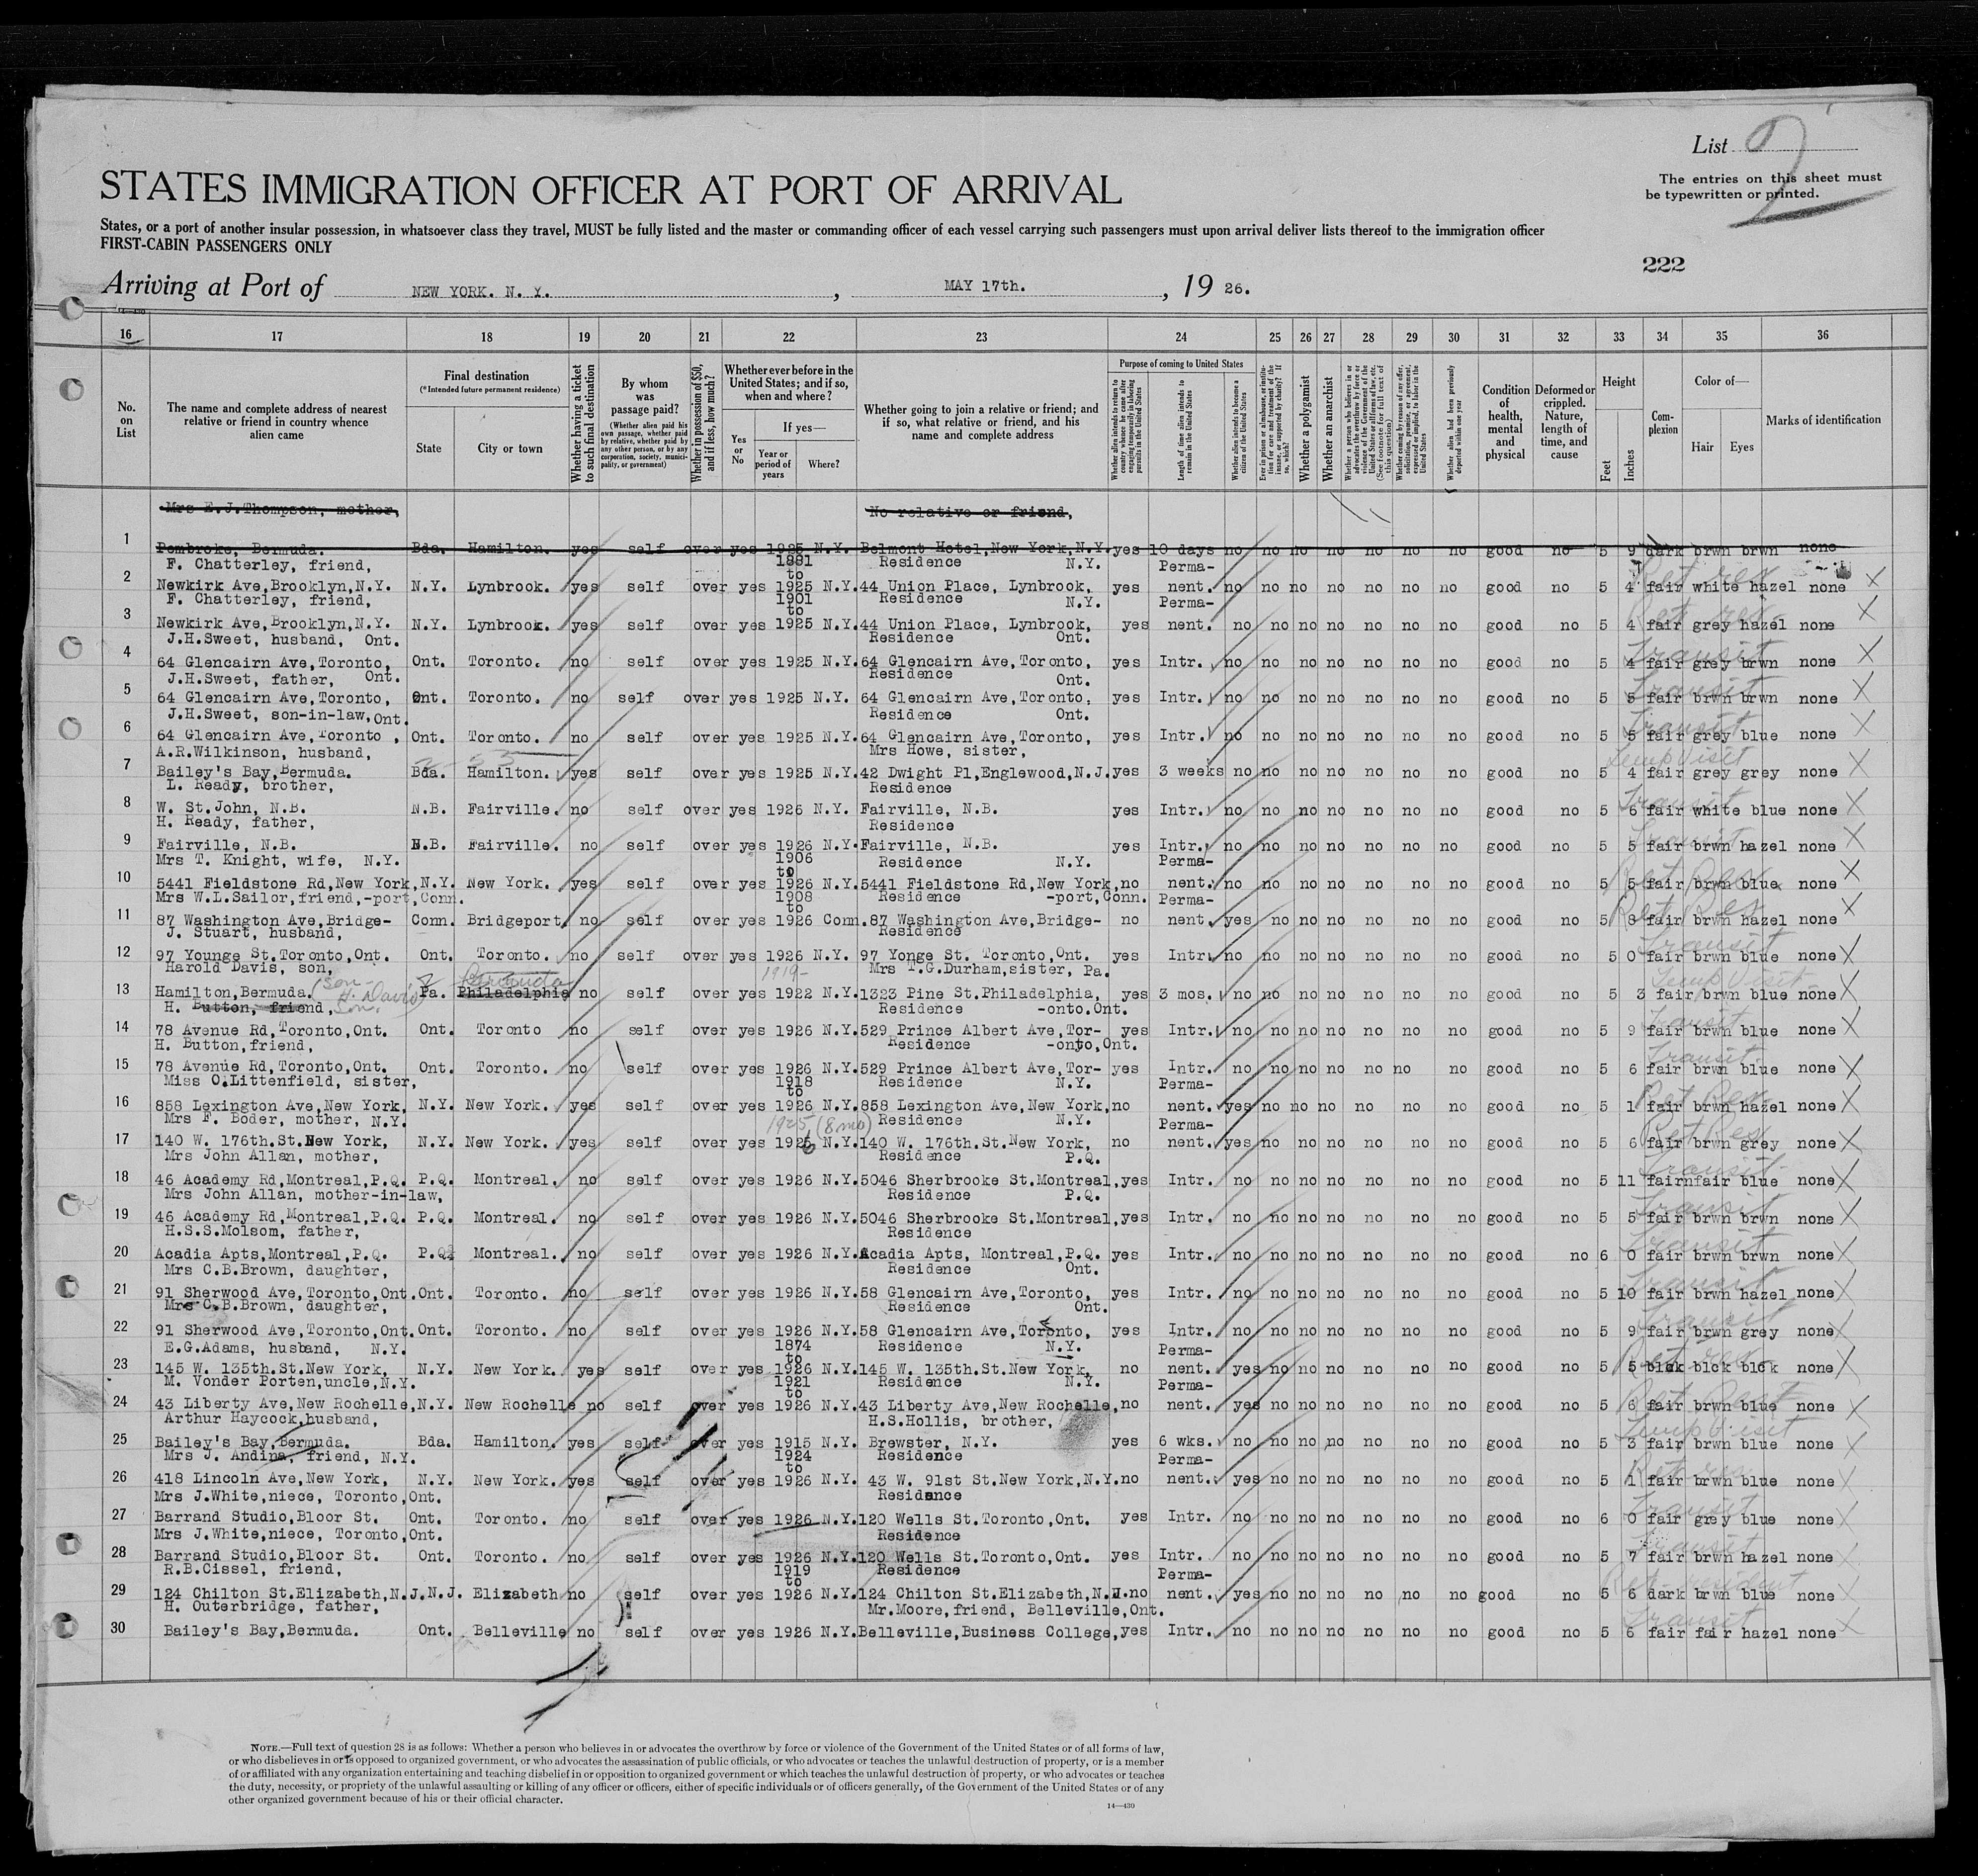 List 2
STATES IMMIGRATION OFFICER AT PORT OF ARRIVAL
The entries on this sheet must
be typewritten or printed.
States, or a port of another insular possession, in whatsoever class they travel, MUST be fully listed and the master or commanding officer of each vessel carrying such passengers must upon arrival deliver lists thereof to the immigration officer
FIRST-CABIN PASSENGERS ONLY
222
Arriving at Port of NEW YORK. N. Y. , MAY 17th. , 19 26.
14—430
16 17 18 19 20 21 22 23 24 25 26 27 28 29 30 31 32 33 34 35 36
No. on List
The name and complete address of nearest relative or friend in country whence alien came
Final destination
(*Intended future permanent residence)
State
City or town
Whether having a ticket to such final destination
By whom was passage paid?
(Whether alien paid his own passage, whether paid by relative, whether paid by any other person, or by any corporation, society, municipality, or government)
Whether in possession of $50, and if less, how much?
Whether ever before in the United States; and if so, when and where?
Yes or No
If yes—
Year or period of years
Where?
Whether going to join a relative or friend; and if so, what relative or friend, and his name and complete address
Purpose of coming to United States
Whether alien intends to return to country whence he came after engaging temporarily in laboring pursuits in the United States
Length of time alien intends to remain in the United States
Whether alien intends to become a citizen of the United States
Ever in prison or almshouse, or institution for care and treatment of the insane, or supported by charity? If so, which?
Whether a polygamist
Whether an anarchist
Whether a person who believes in or advocates the overthrow by force or violence of the Government of the United States or all forms of law, etc. (See footnote for full text of this question)
Whether coming by reason of any offer, solicitation, promise, or agreement, expressed or implied, to labor in the United States
Whether alien had been previously deported within one year
Condition of health, mental and physical
Deformed or crippled. Nature, length of time, and cause
Height
Feet
Inches
Complexion
Color of—
Hair
Eyes
Marks of identification
Mrs E.J.Thompson, mother, No relative or friend,
1 Pembroke, Bermuda. Bda. Hamilton. yes self over yes 1925 N.Y. Belmont Hotel,New York,N.Y. yes 10 days no no no no no no no good no 5 9 dark brwn brwn none
F. Chatterley, friend, 1881 to Residence N.Y. Perma- Ret res
2 Newkirk Ave,Brooklyn,N.Y. N.Y. Lynbrook. yes self over yes 1925 N.Y. 44 Union Place, Lynbrook, yes nent. no no no no no no no good no 5 4 fair white hazel none X
F. Chatterley, friend, 1901 to Residence N.Y. Perma- Ret res
3 Newkirk Ave,Brooklyn,N.Y. N.Y. Lynbrook. yes self over yes 1925 N.Y. 44 Union Place, Lynbrook, yes nent. no no no no no no no good no 5 4 fair grey hazel none X
J.H.Sweet, husband, Ont. Residence Ont. Transit
4 64 Glencairn Ave,Toronto, Ont. Toronto. no self over yes 1925 N.Y. 64 Glencairn Ave,Toronto, yes Intr. no no no no no no no good no 5 4 fair grey brwn none X
J.H.Sweet, father, Ont. Residence Ont. Transit
5 64 Glencairn Ave,Toronto, Ont. Toronto. no self over yes 1925 N.Y. 64 Glencairn Ave,Toronto, yes Intr. no no no no no no no good no 5 5 fair brwn brwn none X
J.H.Sweet, son-in-law,Ont. Residence Ont. Transit
6 64 Glencairn Ave,Toronto , Ont. Toronto. no self over yes 1925 N.Y. 64 Glencairn Ave,Toronto, yes Intr. no no no no no no no good no 5 5 fair grey blue none X
A.R.Wilkinson, husband, Mrs Howe, sister, Temp Visit
7 Bailey's Bay,Bermuda. Bda. Hamilton. yes self over yes 1925 N.Y. 42 Dwight Pl,Englewood,N.J. yes 3 weeks no no no no no no no good no 5 4 fair grey grey none X
L. Ready, brother, Residence Transit
8 W. St.John, N.B. N.B. Fairville. no self over yes 1926 N.Y. Fairville, N.B. yes Intr. no no no no no no no good no 5 6 fair white blue none X
H. Ready, father, Residence Transit
9 Fairville, N.B. N.B. Fairville. no self over yes 1926 N.Y. Fairville, N.B. yes Intr. no no no no no no no good no 5 5 fair brwn hazel none X
Mrs T. Knight, wife, N.Y. 1906 to Residence N.Y. Perma- Ret Res
10 5441 Fieldstone Rd,New York, N.Y. New York. yes self over yes 1926 N.Y. 5441 Fieldstone Rd,New York, no nent. no no no no no no no good no 5 5 fair brwn blue none X
Mrs W.L.Sailor,friend,-port,Conn. 1908 to Residence -port,Conn. Perma- Ret Res
11 87 Washington Ave,Bridge- Conn. Bridgeport. no self over yes 1926 Conn. 87 Washington Ave,Bridge- no nent. yes no no no no no no good no 5 8 fair brwn hazel none X
J. Stuart, husband, Residence Transit
12 97 Younge St.Toronto,Ont. Ont. Toronto. no self over yes 1926 N.Y. 97 Yonge St. Toronto,Ont. yes Intr. no no no no no no no good no 5 0 fair brwn blue none X
Harold Davis, son, Bermuda 1919- Mrs T.G.Durham,sister, Pa. Temp Visit
13 Hamilton,Bermuda. Pa. Philadelphia no self over yes 1922 N.Y. 1323 Pine St.Philadelphia, yes 3 mos. no no no no no no no good no 5 3 fair brwn blue none X
H. Button, friend, (Son- H. Davis Son.) Residence -onto.Ont. Transit
14 78 Avenue Rd,Toronto,Ont. Ont. Toronto no self over yes 1926 N.Y. 529 Prince Albert Ave,Tor- yes Intr. no no no no no no no good no 5 9 fair brwn blue none X
H. Button,friend, Residence -onto,Ont. Transit
15 78 Avenue Rd,Toronto,Ont. Ont. Toronto. no self over yes 1926 N.Y. 529 Prince Albert Ave,Tor- yes Intr. no no no no no no no good no 5 6 fair brwn blue none X
Miss O.Littenfield, sister, 1918 to Residence N.Y. Perma- Ret Res
16 858 Lexington Ave,New York, N.Y. New York. yes self over yes 1926 N.Y. 858 Lexington Ave,New York, no nent. yes no no no no no no good no 5 1 fair brwn hazel none X
Mrs F. Boder, mother, N.Y. 1925 (8mo) Residence N.Y. Perma- Ret Res
17 140 W. 176th.St.New York, N.Y. New York. yes self over yes 1926 N.Y. 140 W. 176th.St.New York, no nent. yes no no no no no no good no 5 6 fair brwn grey none X
Mrs John Allan, mother, Residence P.Q. Transit
18 46 Academy Rd,Montreal,P.Q. P.Q. Montreal. no self over yes 1926 N.Y. 5046 Sherbrooke St.Montreal, yes Intr. no no no no no no no good no 5 11 fairnfair blue none X
Mrs John Allan, mother-in-law, Residence P.Q. Transit
19 46 Academy Rd,Montreal,P.Q. P.Q. Montreal. no self over yes 1926 N.Y. 5046 Sherbrooke St.Montreal, yes Intr. no no no no no no no good no 5 5 fair brwn brwn none X
H.S.S.Molsom, father, Residence Transit
20 Acadia Apts,Montreal,P.Q. P.Q. Montreal. no self over yes 1926 N.Y. Acadia Apts, Montreal,P.Q. yes Intr. no no no no no no no good no 6 0 fair brwn brwn none X
Mrs C.B.Brown, daughter, Residence Ont. Transit
21 91 Sherwood Ave,Toronto,Ont. Ont. Toronto. no self over yes 1926 N.Y. 58 Glencairn Ave,Toronto, yes Intr. no no no no no no no good no 5 10 fair brwn hazel none X
Mrs C.B.Brown, daughter, Residence Ont. Transit
22 91 Sherwood Ave,Toronto,Ont. Ont. Toronto. no self over yes 1926 N.Y. 58 Glencairn Ave,Toronto, yes Intr. no no no no no no no good no 5 9 fair brwn grey none X
E.G.Adams, husband, N.Y. 1874 to Residence N.Y. Perma- Ret res
23 145 W. 135th.St.New York, N.Y. New York. yes self over yes 1926 N.Y. 145 W. 135th.St.New York, no nent. yes no no no no no no good no 5 5 blck blck blck none X
M. Vonder Porten,uncle,N.Y. 1921 to Residence N.Y. Perma- Ret Res
24 43 Liberty Ave,New Rochelle, N.Y. New Rochelle no self over yes 1926 N.Y. 43 Liberty Ave,New Rochelle, no nent. yes no no no no no no good no 5 6 fair brwn blue none X
Arthur Haycock,husband, H.S.Hollis, brother, Temp Visit
25 Bailey's Bay,Bermuda. Bda. Hamilton. yes self over yes 1915 N.Y. Brewster, N.Y. yes 6 wks. no no no no no no no good no 5 3 fair brwn blue none X
Mrs J. Andina, friend, N.Y. 1924 to Residence Perma- Ret res
26 418 Lincoln Ave,New York, N.Y. New York. yes self over yes 1926 N.Y. 43 W. 91st St.New York,N.Y. no nent. yes no no no no no no good no 5 1 fair brwn blue none X
Mrs J.White,niece, Toronto,Ont. Residence Transit
27 Barrand Studio,Bloor St. Ont. Toronto. no self over yes 1926 N.Y. 120 Wells St.Toronto,Ont. yes Intr. no no no no no no no good no 6 0 fair grey blue none X
Mrs J.White,niece, Toronto,Ont. Residence Transit
28 Barrand Studio,Bloor St. Ont. Toronto. no self over yes 1926 N.Y. 120 Wells St.Toronto,Ont. yes Intr. no no no no no no no good no 5 7 fair brwn hazel none X
R.B.Cissel, friend, 1919 to Residence Perma- Ret resident
29 124 Chilton St.Elizabeth,N.J. N.J. Elizabeth no self over yes 1926 N.Y. 124 Chilton St.Elizabeth,N.J. no nent. yes no no no no no no good no 5 6 dark brwn blue none X
H. Outerbridge, father, Mr.Moore,friend, Belleville,Ont. Transit
30 Bailey's Bay,Bermuda. Ont. Belleville no self over yes 1926 N.Y. Belleville,Business College, yes Intr. no no no no no no no good no 5 6 fair fair hazel none X
NOTE.—Full text of question 28 is as follows: Whether a person who believes in or advocates the overthrow by force or violence of the Government of the United States or of all forms of law,
or who disbelieves in or is opposed to organized government, or who advocates the assassination of public officials, or who advocates or teaches the unlawful destruction of property, or is a member
of or affiliated with any organization entertaining and teaching disbelief in or opposition to organized government or which teaches the unlawful destruction of property, or who advocates or teaches
the duty, necessity, or propriety of the unlawful assaulting or killing of any officer or officers, either of specific individuals or of officers generally, of the Government of the United States or of any
other organized government because of his or their official character.
14—430